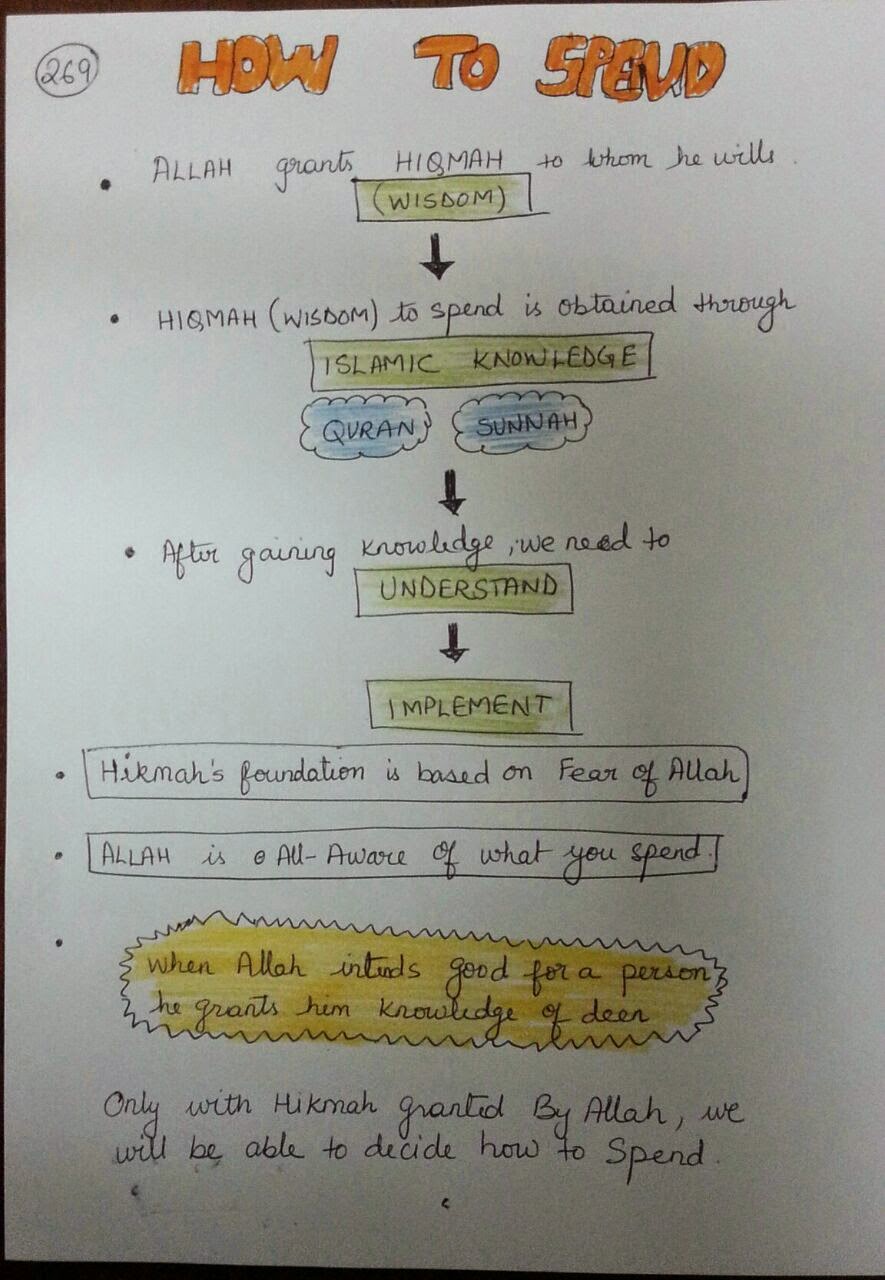 269
HOW TO SPEND
• ALLAH grants HIQMAH to whom he wills.
(WISDOM)
• HIQMAH (WISDOM) to spend is obtained through
ISLAMIC KNOWLEDGE
QURAN SUNNAH
• After gaining knowledge, we need to
UNDERSTAND
IMPLEMENT
• Hikmah's foundation is based on Fear of Allah
• ALLAH is All-Aware of what you spend.
• When Allah intends good for a person
he grants him knowledge of deen
Only with Hikmah granted By Allah, we
will be able to decide how to Spend.